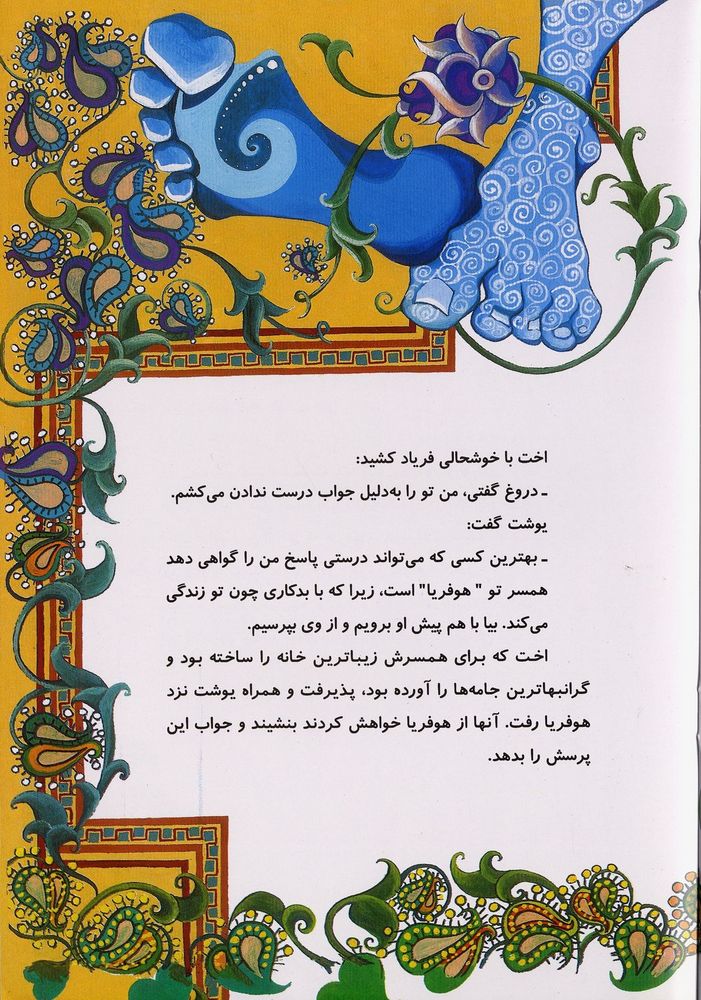 اخت با خوشحالی فریاد کشید:
ـ دروغ گفتی، من تو را به‌دلیل جواب درست ندادن می‌کشم.
یوشت گفت:
ـ بهترین کسی که می‌تواند درستی پاسخ من را گواهی دهد
همسر تو " هوفریا" است، زیرا که با بدکاری چون تو زندگی
می‌کند. بیا با هم پیش او برویم و از وی بپرسیم.
اخت که برای همسرش زیباترین خانه را ساخته بود و
گرانبهاترین جامه‌ها را آورده بود، پذیرفت و همراه یوشت نزد
هوفریا رفت. آنها از هوفریا خواهش کردند بنشیند و جواب این
پرسش را بدهد.